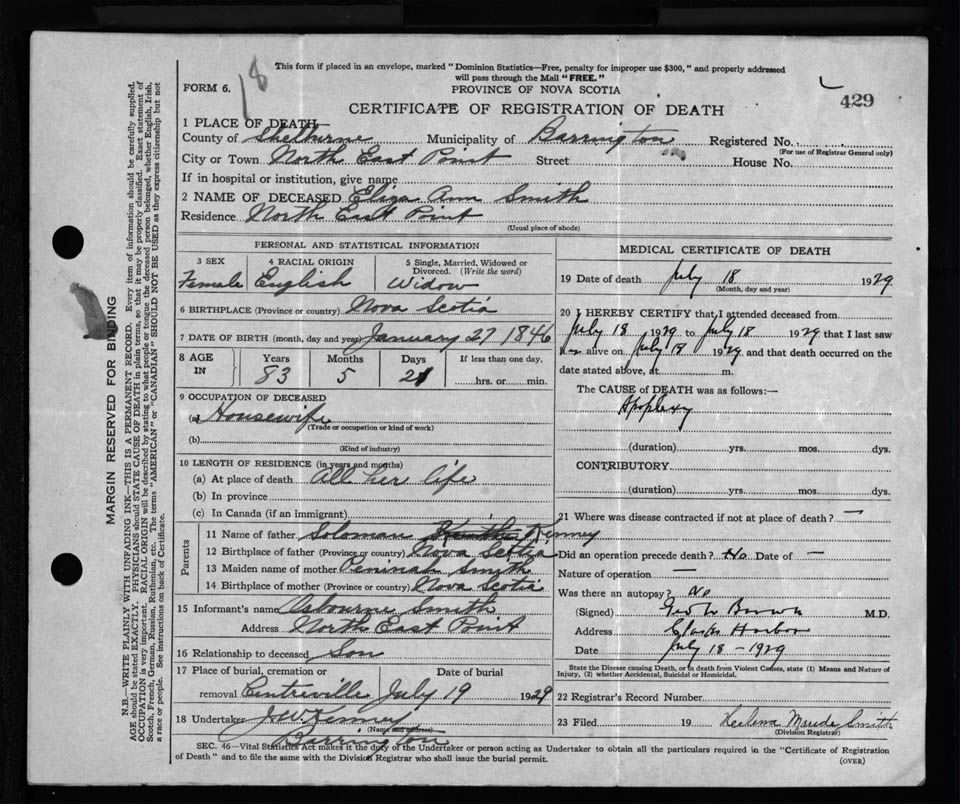 18
This form if placed in an envelope, marked "Dominion Statistics—Free, penalty for improper use $300," and properly addressed
will pass through the Mail "FREE."
FORM 6.
PROVINCE OF NOVA SCOTIA
429
CERTIFICATE OF REGISTRATION OF DEATH
1 PLACE OF DEATH
County of Shelburne Municipality of Barrington Registered No.
(For use of Registrar General only)
City or Town North East Point Street House No.
If in hospital or institution, give name
2 NAME OF DECEASED Eliza Ann Smith
Residence North East Point
(Usual place of abode)
PERSONAL AND STATISTICAL INFORMATION
3 SEX 4 RACIAL ORIGIN 5 Single, Married, Widowed or
Divorced. (Write the word)
Female English Widow
6 BIRTHPLACE (Province or country) Nova Scotia
7 DATE OF BIRTH (month, day and year) January 27 1846
8 AGE IN Years Months Days If less than one day,
83 5 21 hrs. or min.
9 OCCUPATION OF DECEASED
(a) Housewife
(Trade or occupation or kind of work)
(b)
(Kind of industry)
10 LENGTH OF RESIDENCE (in years and months)
(a) At place of death All here life
(b) In province
(c) In Canada (if an immigrant)
Parents
11 Name of father Soloman Kenney
12 Birthplace of father (Province or country) Nova Scotia
13 Maiden name of mother Peninah Smith
14 Birthplace of mother (Province or country) Nova Scotia
15 Informant's name Osbourne Smith
Address North East Point
16 Relationship to deceased Son
17 Place of burial, cremation or Date of burial
removal Centreville July 19 1929
18 Undertaker J W Kenney
(Name and address)
Barrington
MEDICAL CERTIFICATE OF DEATH
19 Date of death July 18 1929
(Month, day and year)
20 I HEREBY CERTIFY that I attended deceased from
July 18 1929 to July 18 1929 that I last saw
alive on July 18 1929 and that death occurred on the
date stated above, at m.
The CAUSE of DEATH was as follows:—
Apoplexy
(duration) yrs. mos. dys.
CONTRIBUTORY
(duration) yrs. mos. dys.
21 Where was disease contracted if not at place of death? —
Did an operation precede death? No Date of —
Nature of operation —
Was there an autopsy? No
(Signed) Brown M.D.
Address Clarks Harbor
Date July 18 - 1929
State the Disease causing Death, or in death from Violent Causes, state (1) Means and Nature of
Injury, (2) whether Accidental, Suicidal or Homicidal.
22 Registrar's Record Number
23 Filed 19 Smith
(Division Registrar)
SEC. 46—Vital Statistics Act makes it the duty of the Undertaker or person acting as Undertaker to obtain all the particulars required in the "Certificate of Registration
of Death" and to file the same with the Division Registrar who shall issue the burial permit.
(OVER)
MARGIN RESERVED FOR BINDING
N.B.—WRITE PLAINLY WITH UNFADING INK—THIS IS A PERMANENT RECORD. Every item of information should be carefully supplied.
AGE should be stated EXACTLY. PHYSICIANS should STATE CAUSE OF DEATH in plain terms, so that it may be properly classified. Exact statement of
OCCUPATION is very important. RACIAL ORIGIN will be described by stating to what people or tongue the deceased person belonged, whether English, Irish,
Scotch, French, German, Russian, Ruthenian, etc. The terms "AMERICAN" or "CANADIAN" SHOULD NOT BE USED as they express citizenship but not
a race or people. See instructions on back of Certificate.